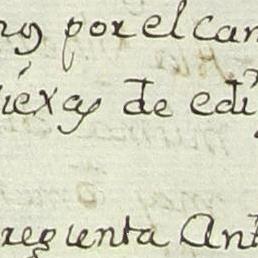 por el can
viexas de edi
regunta Ant